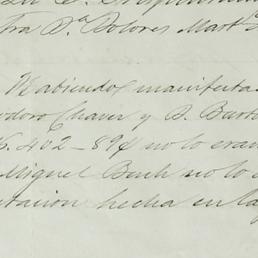 tra D.ª Dolores Mart
Habiendo manifesta
odoro Chaver y D. Barto
402-89¢ no lo eran
Miguel Buch no lo
tacion hecha en la